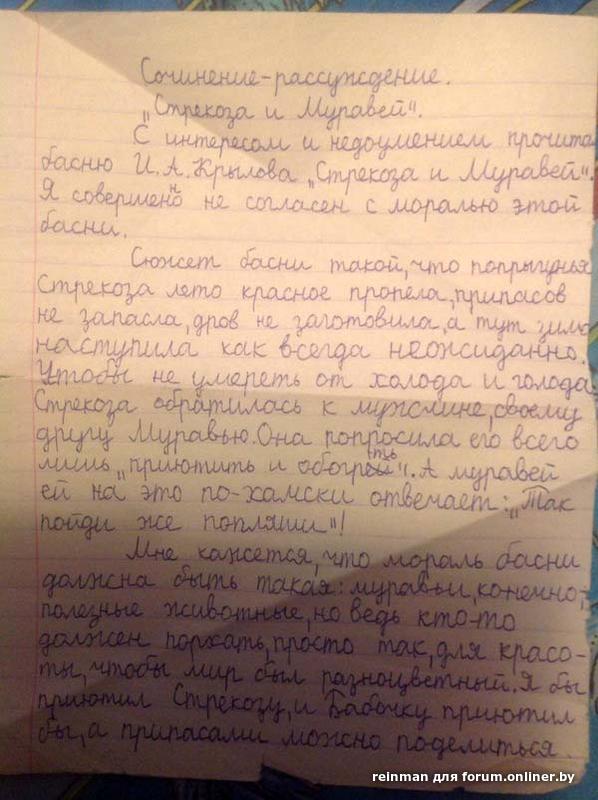 Сочинение-рассуждение.
„Стрекоза и Муравей".
С интересом и недоумением прочита
басню И.А.Крылова „Стрекоза и Муравей".
Я совершенно не согласен с моралью этой
басни.
Сюжет басни такой, что попрыгунья
Стрекоза лето красное пропела, припасов
не запасла, дров не заготовила, а тут зима
наступила как всегда неожиданно.
Чтобы не умереть от холода и голода
Стрекоза обратилась к мужчине, своему
другу Муравью. Она попросила его всего
лишь „приютить и обогреть". А муравей
ей на это по-хамски отвечает: „Так
пойди же попляши"!
Мне кажется, что мораль басни
должна быть такая: муравьи, конечно,
полезные животные, но ведь кто-то
должен порхать, просто так, для красо-
ты, чтобы мир был разноцветный. Я бы
приютил Стрекозу, и Бабочку приютил
бы, а припасами можно поделиться.
reinman для forum.onliner.by